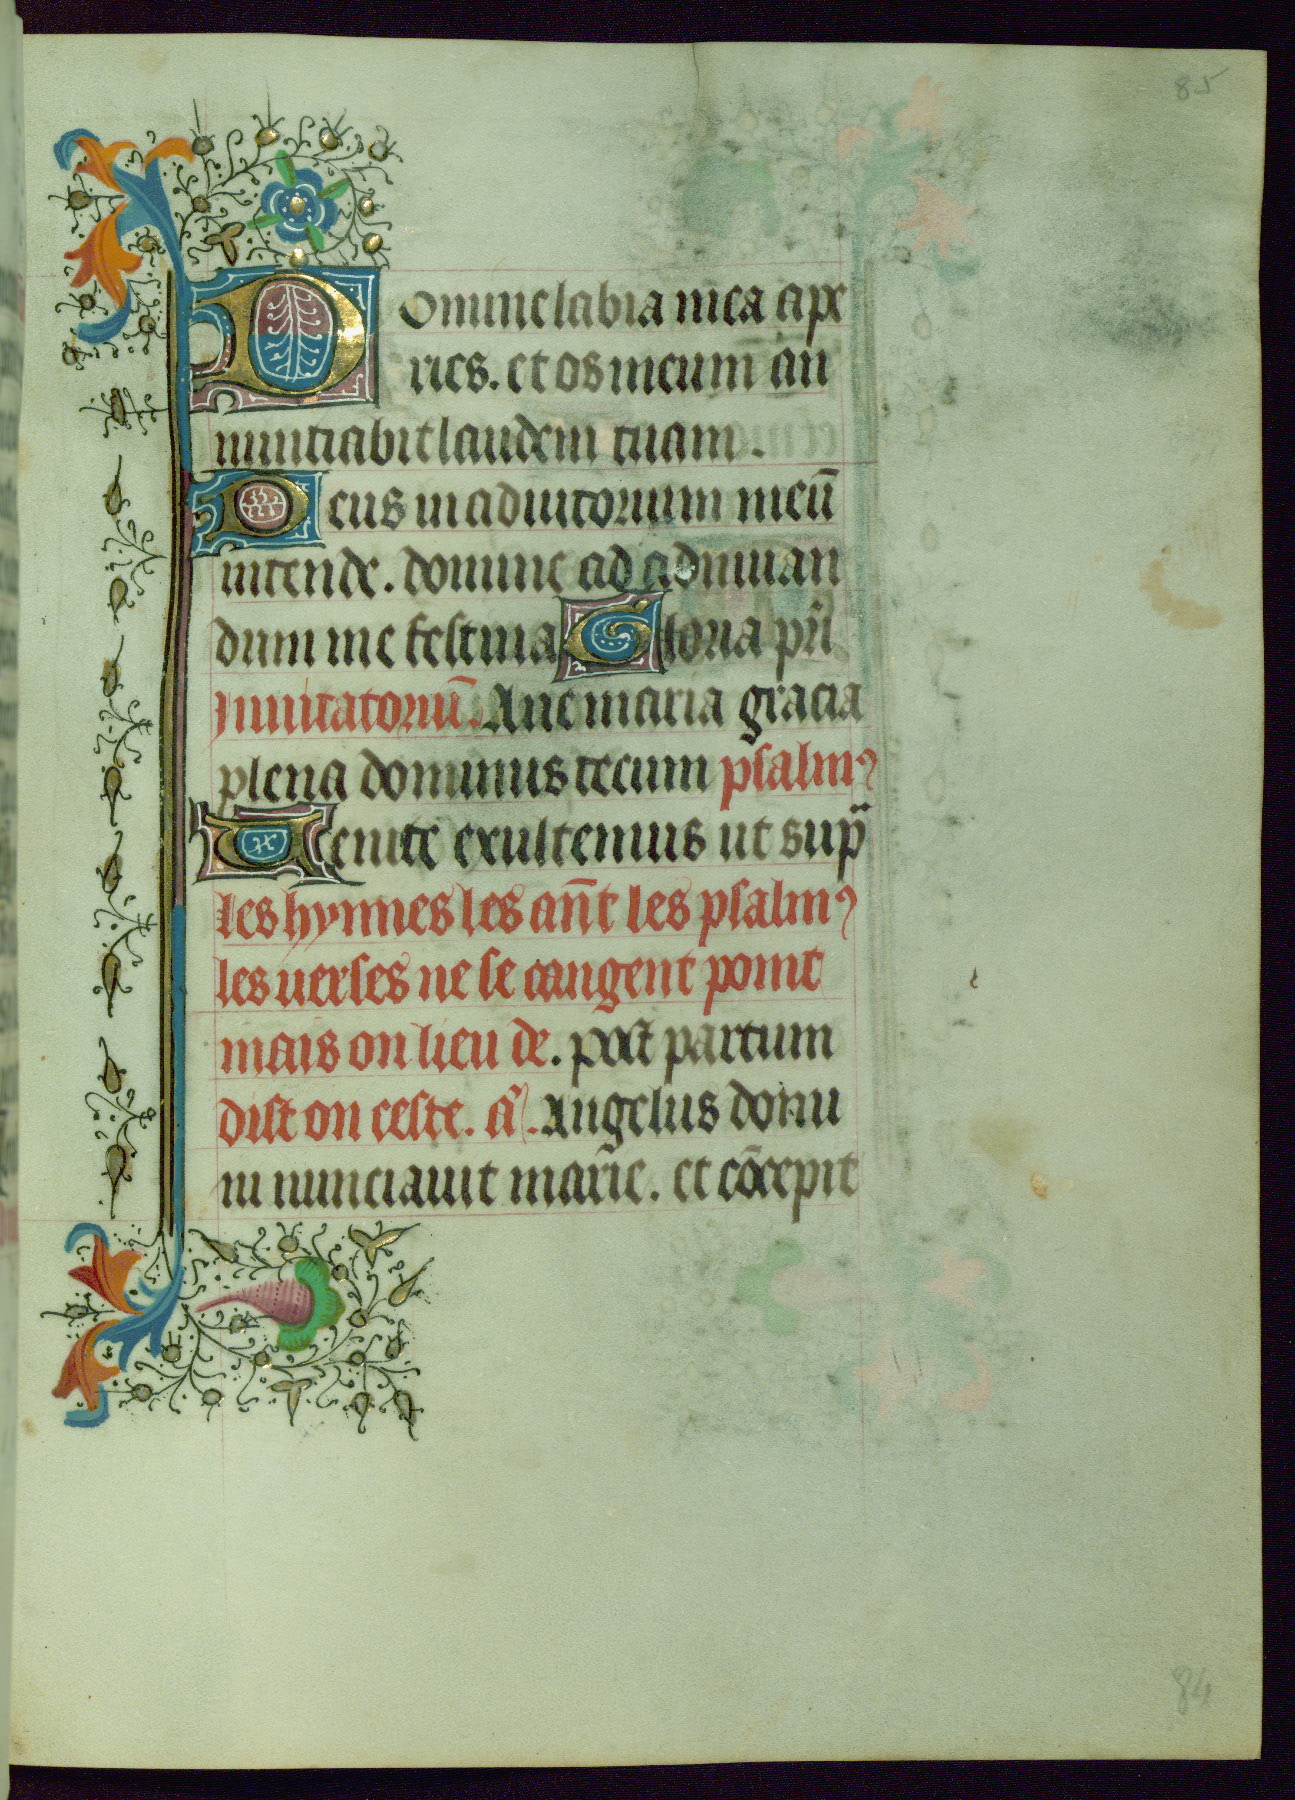 85
Domine labia mea ape
ries. et os meum an
nunciabit laudem tuam.
Deus in adiutorium meū
intende. domine ad adiuuan
dum me festina Gloria pr̄i
Inuitatoriū. Aue maria gracia
plena dominus tecum psalmꝰ
Uenite exultemus ut sup̈
les hymnes les an̄t les psalmꝰ
les uerses ne se cangent point
mais on lieu de. post partum
dist on ceste. a. Angelus domi
ni nunciauit marie. et cōcepit
84